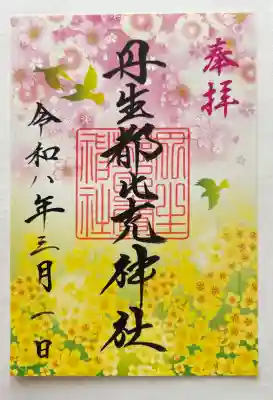 奉拝
丹生都比売神社
令和八年三月一日